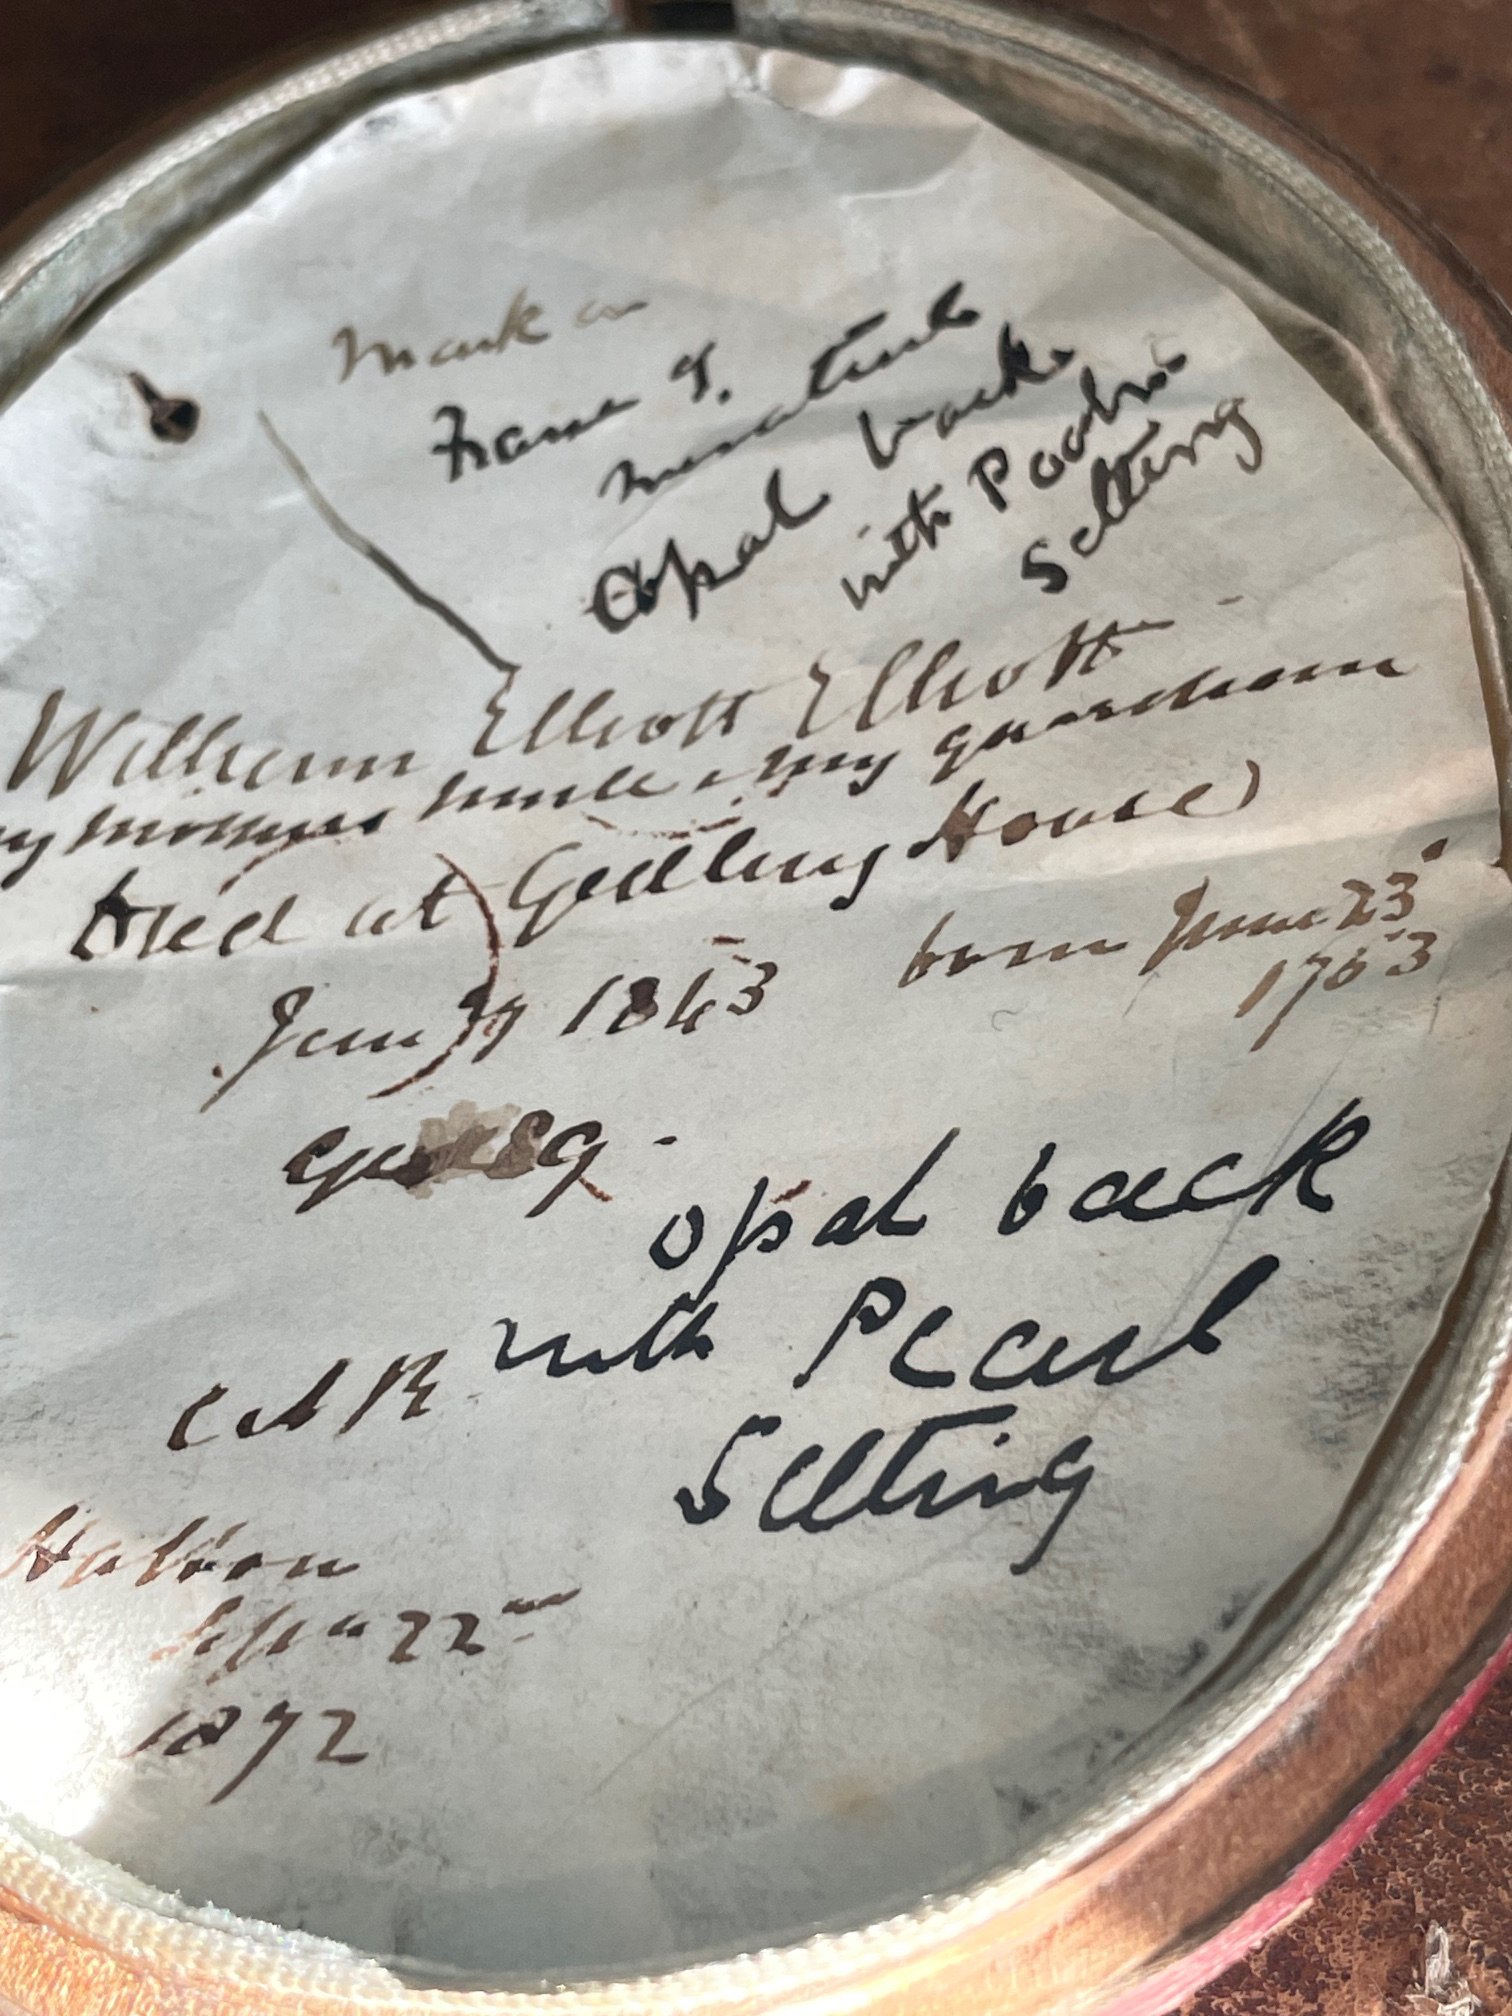 Mark on
Frame of
miniature
Opal back
with Pearl
Setting
William Elliott Elliott
my mothers uncle & my guardian
Died at Gedling House
June 1843 born June 23
1763
opal back
with Pearl
Setting
Halton
Sepr 22nd
1872